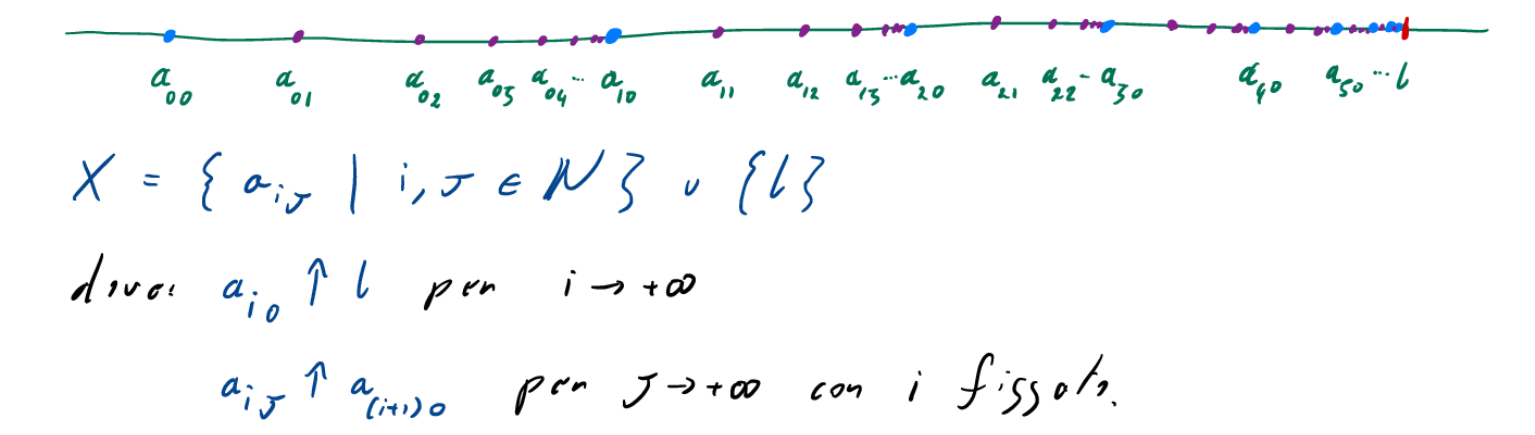 a₀₀ a₀₁ a₀₂ a₀₃ a₀₄ ... a₁₀ a₁₁ a₁₂ a₁₃ ... a₂₀ a₂₁ a₂₂ - a₃₀ a₄₀ a₅₀ ... l
X = { a_{ij} | i, j ∈ N } ∪ {l}
dove: a_{i0} ↑ l per i → +∞
a_{ij} ↑ a_{(i+1)0} per j → +∞ con i fissato.